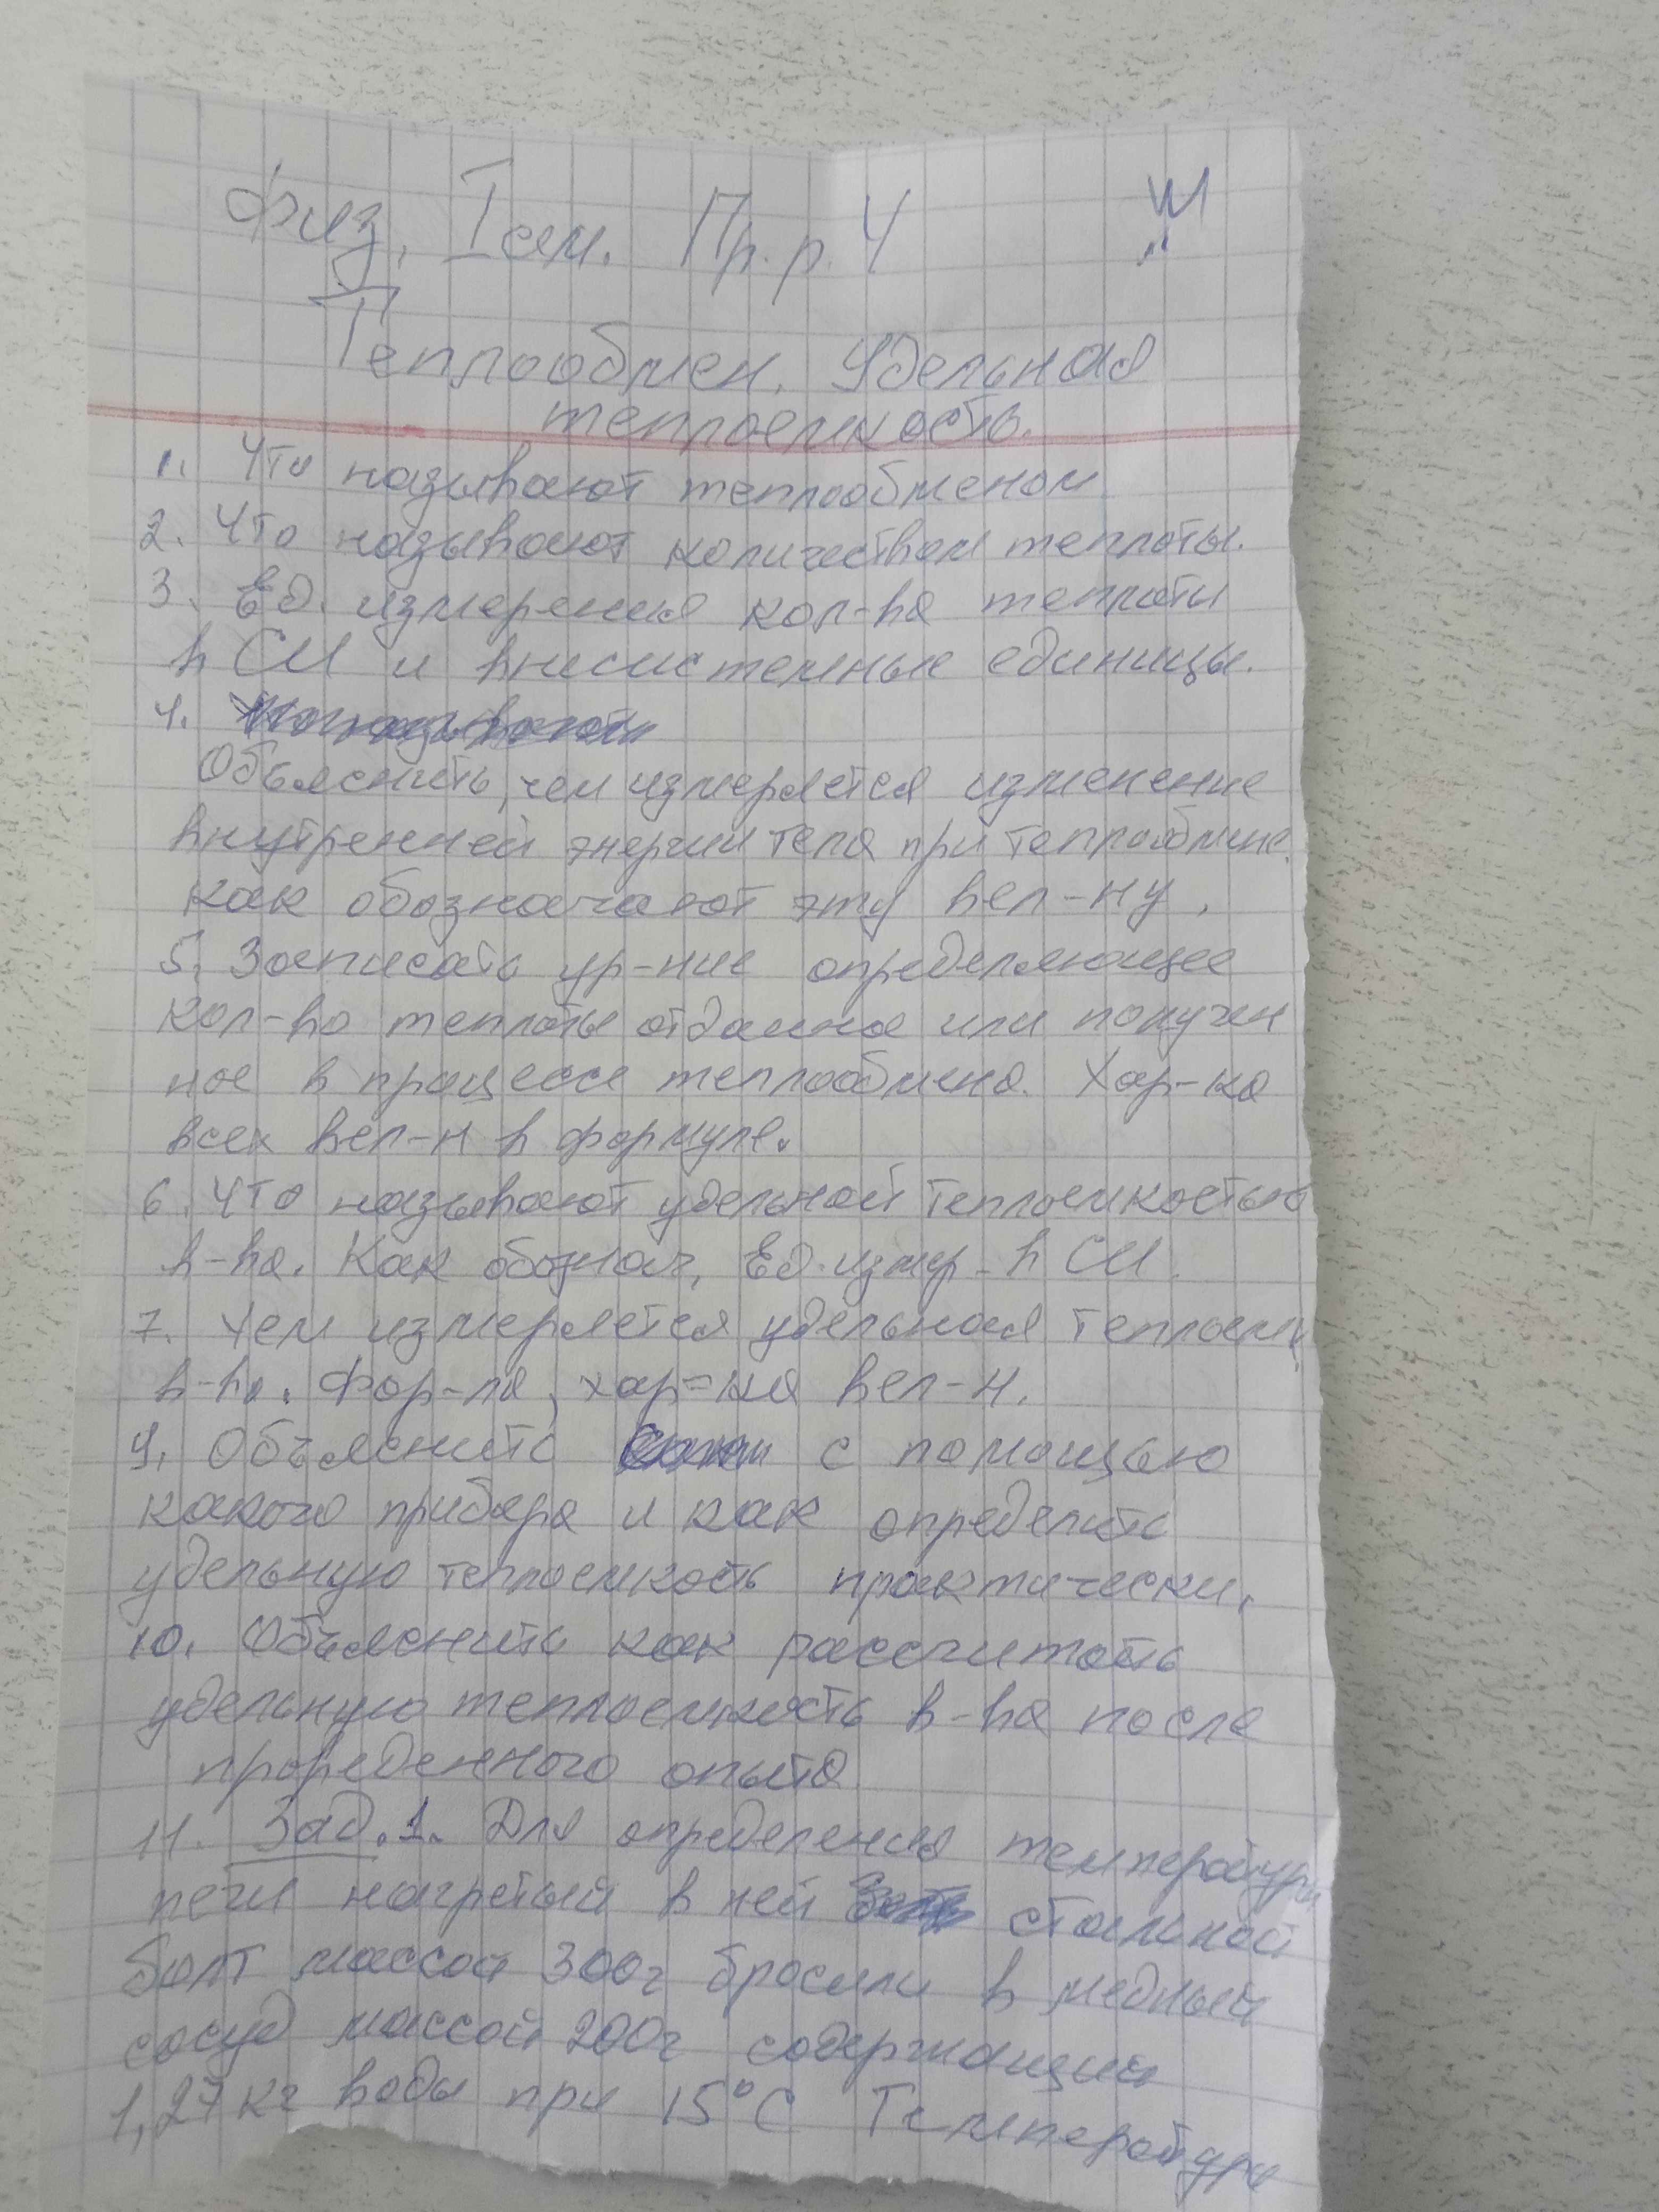 Физ. I сем. Пр. р. 4
Теплообмен. Удельная
теплоемкость.
1. Что называют теплообменом
2. Что называют количеством теплоты.
3. Ед. измерения кол-ва теплоты
в СИ и внесистемные единицы.
4.
Объяснить, чем измеряется изменение
внутренней энергии тела при теплообмене.
Как обозначают эту вел-ну.
5. Записать ур-ние определяющее
кол-во теплоты отданное или получен
ное в процессе теплообмена. Хар-ка
всех вел-н в формуле.
6. Что называют удельной теплоемкостью
в-ва. Как обознач. Ед. измер. в СИ.
7. Чем измеряется удельная теплоемк.
в-ва. Фор-ла, хар-ка вел-н.
9. Объяснить с помощью
какого прибора и как определить
удельную теплоемкость практически.
10. Объяснить как рассчитать
удельную теплоемкость в-ва после
проведенного опыта
11. Зад. 1. Для определения температуры
печи нагретый в ней стальной
болт массой 300г бросили в медный
сосуд массой 200г содержащий
1,27 кг воды при 15°С Температура